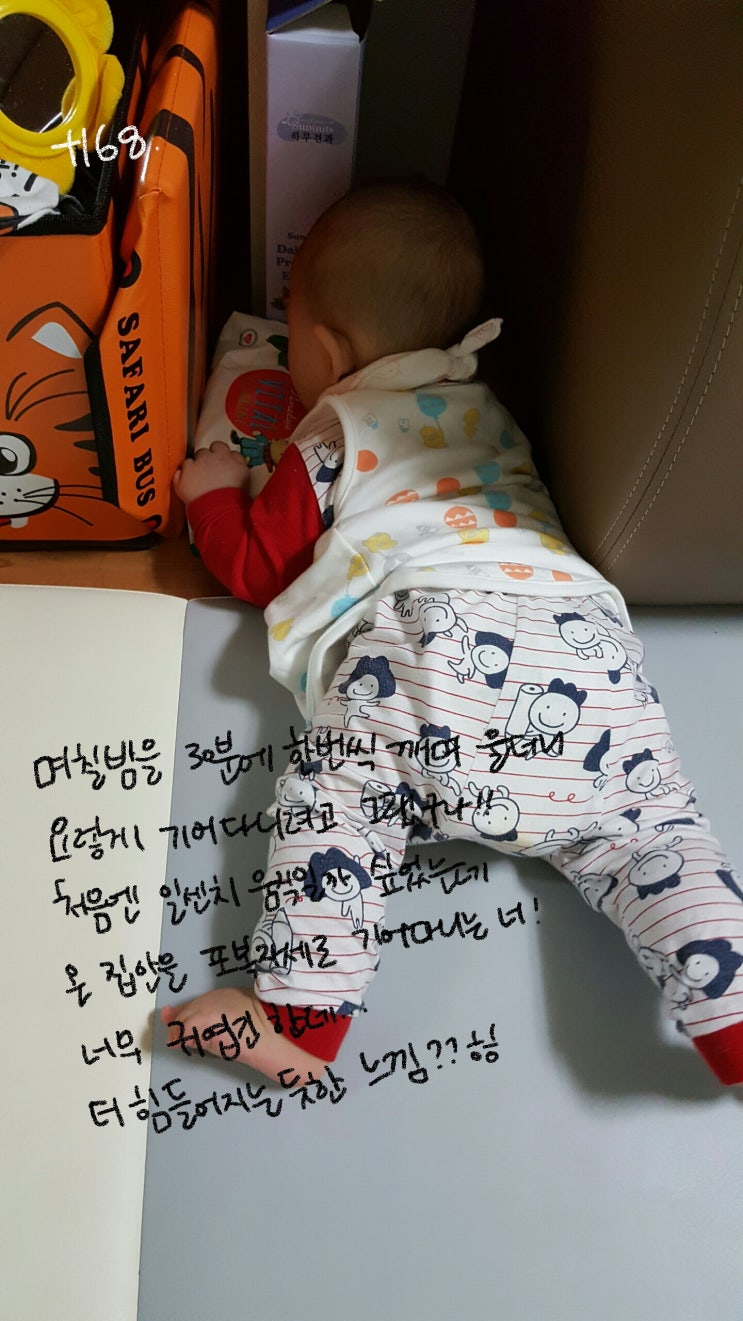 +168
Summits
하루견과
SAFARI BUS
며칠밤을 30분에 한번씩 깨며 울더니
요렇게 기어다니려고 그랬구나!!
처음엔 일센치 움직일까 싶었는데
온 집안을 포복자세로 기어다니는 너!
너무 귀엽긴 한데..
더 힘들어지는 듯한 느낌?? 힝